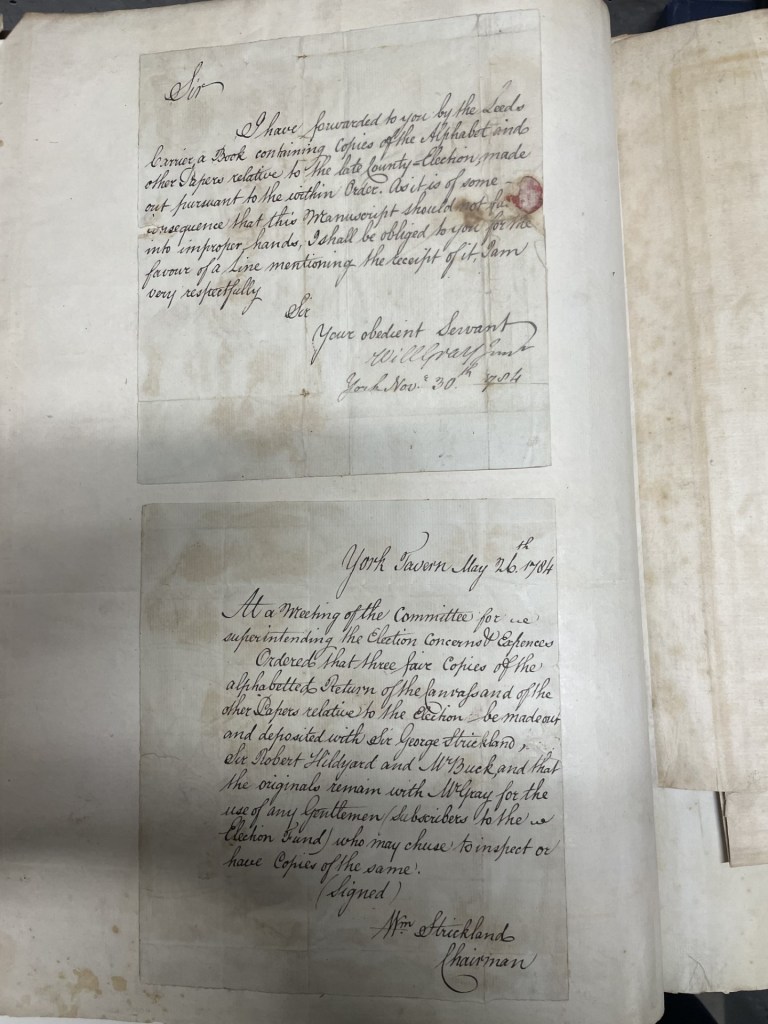 Sir
I have forwarded to you by the Leeds
Carrier, a Book containing Copies of the Alphabet and
other Papers relative to the late County-Election, made
out pursuant to the within Order. As it is of some
consequence that this Manuscript should not
into improper hands, I shall be obliged to you for the
favour of a Line mentioning the receipt of it. I am
very respectfully
Sir
Your obedient Servant
Will Gray Junr
York Novr 30th 1784
York Tavern May 26th 1784
At a Meeting of the Committee for
superintending the Election Concerns & Expences
Ordered that three fair Copies of the
alphabetted Return of the Canvass and of the
other Papers relative to the Election be made out
and deposited with Sir George Strickland,
Sir Robert Hildyard and Mr Buck, and that
the originals remain with Mr Gray for the
use of any Gentlemen (Subscribers to the
Election Fund) who may chuse to inspect or
have Copies of the same.
(Signed)
Wm Strickland
Chairman